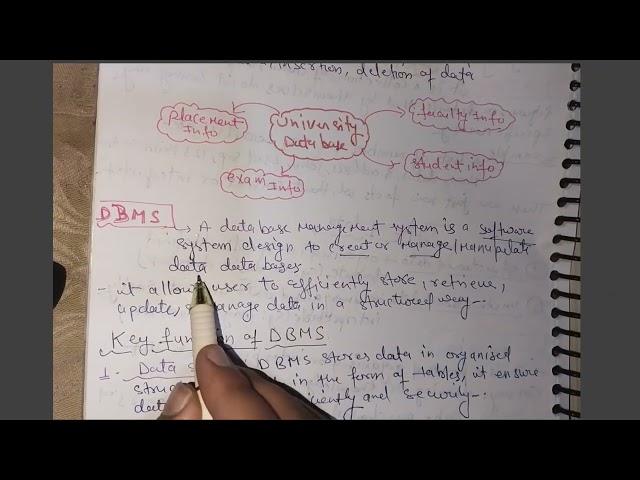 insertion, deletion of data
placement
Info
University
Data base
faculty Info
student info
exam Info
DBMS
→ A data base management system is a software
system design to creat or manage/Manipulate
data data bases.
- it allow user to efficiently store, retrieve,
update, manage data in a structured way -.
Key function of DBMS
1. Data DBMS stores data in organised
in the form of tables, it ensure
and security -.